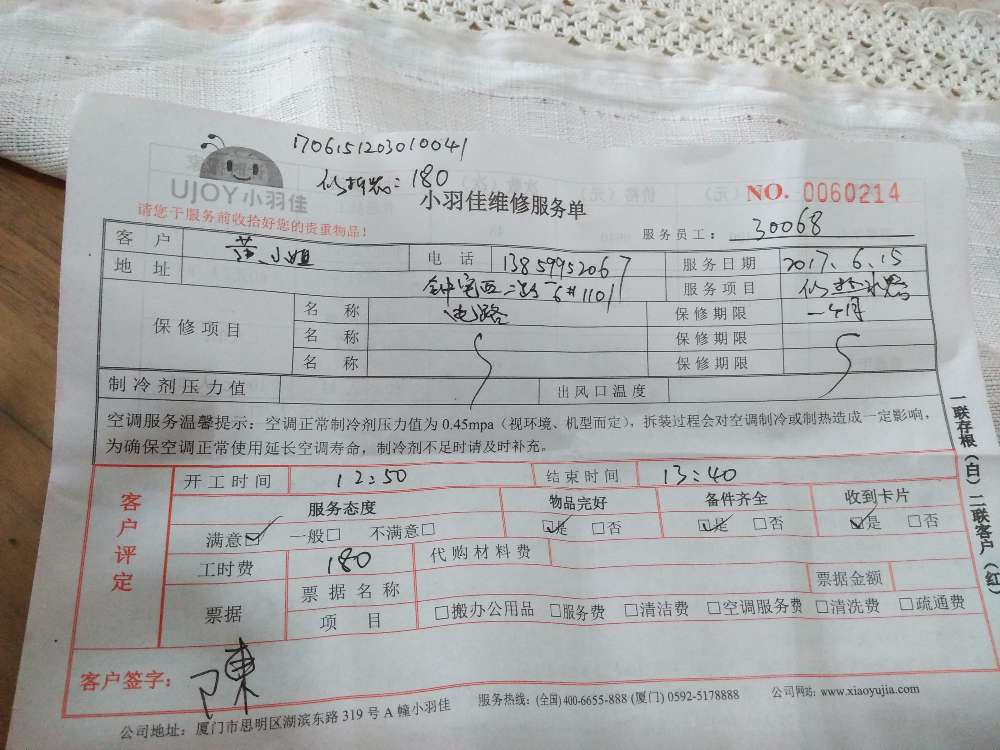 1706151203010041
180
UJOY小羽佳
小羽佳维修服务单
NO. 0060214
请您于服务前收拾好您的贵重物品!
服务员工: 30068
客户 小姐 电话 13859952067 服务日期 2017.6.15
地址 6#1101 服务项目
保修项目 名称 电路 保修期限 一个月
名称 保修期限
名称 保修期限
制冷剂压力值 出风口温度
空调服务温馨提示:空调正常制冷剂压力值为 0.45mpa(视环境、机型而定),拆装过程会对空调制冷或制热造成一定影响,
为确保空调正常使用延长空调寿命,制冷剂不足时请及时补充。
一联存根(白)二联客户(红)
客户评定
开工时间 12:50 结束时间 13:40
服务态度 物品完好 备件齐全 收到卡片
满意☑ 一般□ 不满意□ ☑是 □否 ☑是 □否 ☑是 □否
工时费 180 代购材料费
票据 票据名称 票据金额
项目 □搬办公用品 □服务费 □清洁费 □空调服务费 □清洗费 □疏通费
客户签字: 陳
公司地址:厦门市思明区湖滨东路 319 号 A 幢小羽佳 服务热线:(全国)400-6655-888 (厦门) 0592-5178888 公司网站: www.xiaoyujia.com